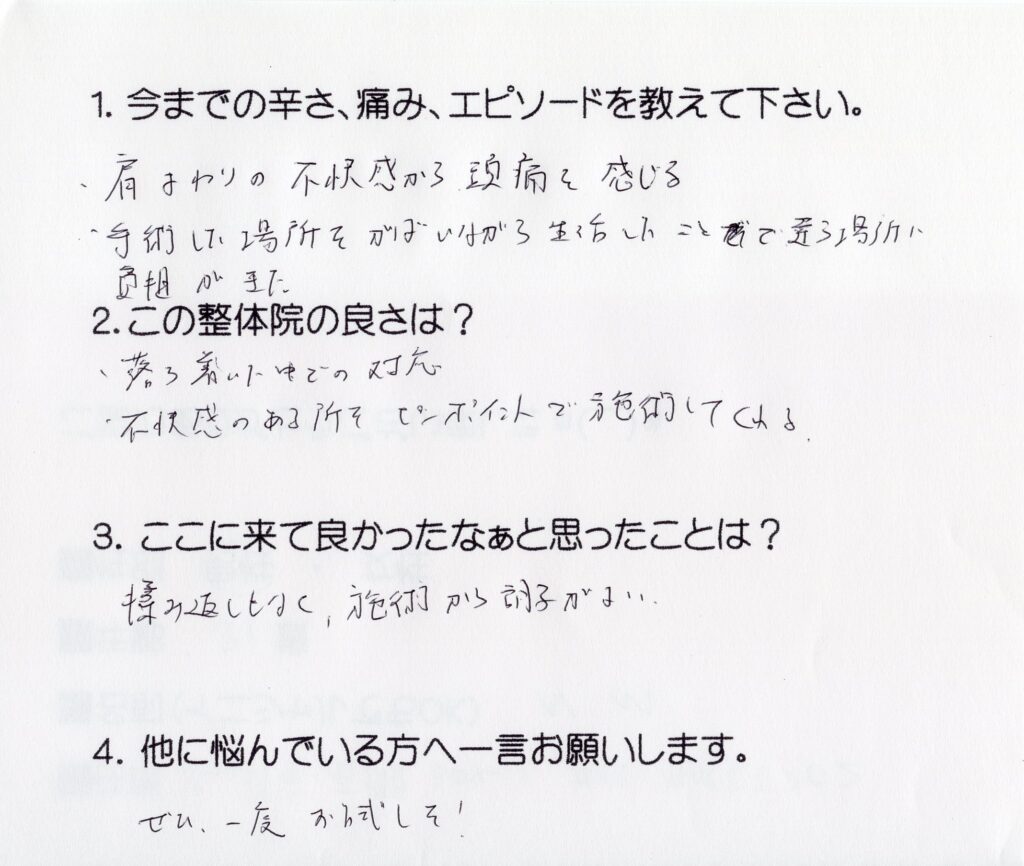 1. 今までの辛さ、痛み、エピソードを教えて下さい。
・肩まわりの不快感から頭痛を感じる
・手術した場所をかばいながら生活したことで違う場所に
負担がきた
2. この整体院の良さは？
・落ち着いた中での対応
・不快感のある所をピンポイントで施術してくれる。
3. ここに来て良かったなぁと思ったことは？
揉み返しもなく、施術から調子がよい。
4. 他に悩んでいる方へ一言お願いします。
ぜひ、一度お試しを！